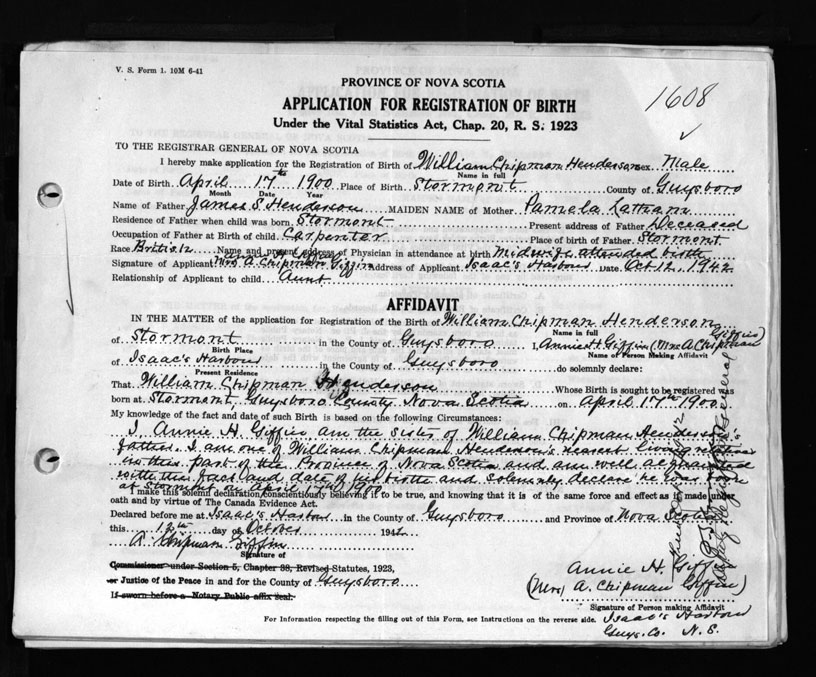 V. S. Form 1. 10M 6-41
PROVINCE OF NOVA SCOTIA
1608
APPLICATION FOR REGISTRATION OF BIRTH
Under the Vital Statistics Act, Chap. 20, R. S. 1923
TO THE REGISTRAR GENERAL OF NOVA SCOTIA
I hereby make application for the Registration of Birth of William Chipman Henderson sex Male
Name in full
Date of Birth April 17th 1900 Place of Birth Stormont County of Guysboro
Month Date Year
Name of Father James S Henderson MAIDEN NAME of Mother Pamela Latham
Residence of Father when child was born Stormont Present address of Father Deceased
Occupation of Father at Birth of child Carpenter Place of birth of Father Stormont
Race British Name and present address of Physician in attendance at birth Midwife attended birth
Signature of Applicant Mrs A. Chipman Giffin Address of Applicant Isaac's Harbour Date Oct 12, 1942
Relationship of Applicant to child Aunt
AFFIDAVIT
IN THE MATTER of the application for Registration of the Birth of William Chipman Henderson
Name in full
of Stormont in the County of Guysboro I, Annie H. Giffin (Mrs A Chipman Giffin)
Birth Place Name of Person Making Affidavit
of Isaac's Harbour in the County of Guysboro do solemnly declare:
Present Residence
That William Chipman Henderson Whose Birth is sought to be registered was
born at Stormont, Guysboro County Nova Scotia on April 17th 1900
My knowledge of the fact and date of such Birth is based on the following Circumstances:
I Annie H. Giffin am the sister of William Chipman Henderson's
father. I am one of William Chipman Henderson's nearest living relatives
in this part of the Province of Nova Scotia and am well acquainted
with the fact and date of his birth and solemnly declare he was born
at Stormont on April 17th 1900
I make this solemn declaration conscientiously believing it to be true, and knowing that it is of the same force and effect as if made under
oath and by virtue of The Canada Evidence Act.
Declared before me at Isaac's Harbour in the County of Guysboro and Province of Nova Scotia
this 12th day of October 1942
A. Chipman Giffin
Signature of
Commissioner under Section 5, Chapter 38, Revised Statutes, 1923,
or Justice of the Peace in and for the County of Guysboro
If sworn before a Notary Public affix seal.
Annie H. Giffin
(Mrs A. Chipman Giffin)
Signature of Person making Affidavit
For Information respecting the filling out of this Form, see Instructions on the reverse side.
Isaac's Harbour
Guys. Co. N. S.